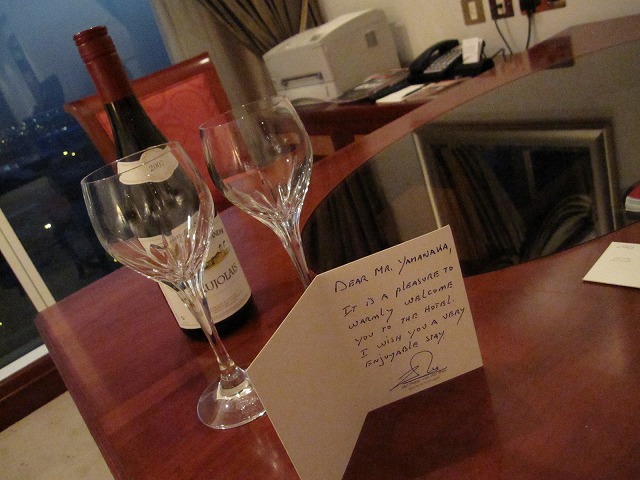 2007
Dear Mr. Yamanaka,
It is a pleasure to
warmly welcome
you to the hotel.
I wish you a very
enjoyable stay.